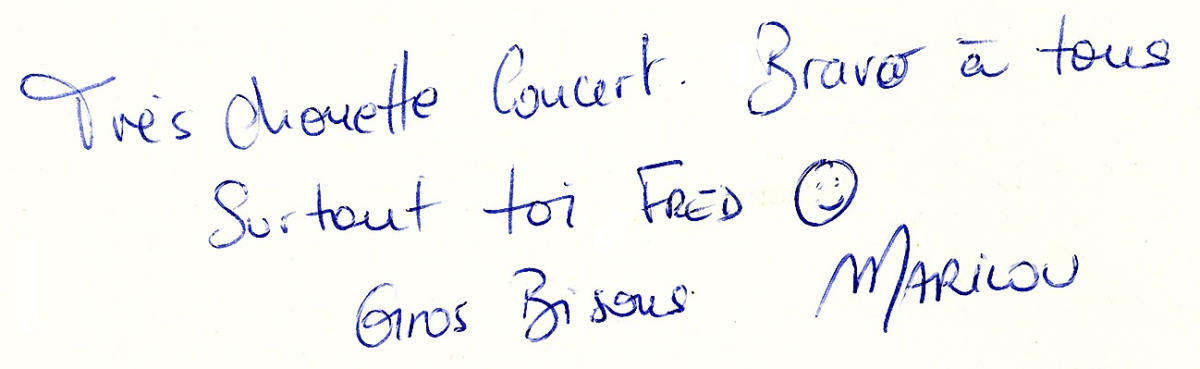 Très chouette Concert. Bravo à tous
Surtout toi FRED ☺
Gros Bisous MARILOU